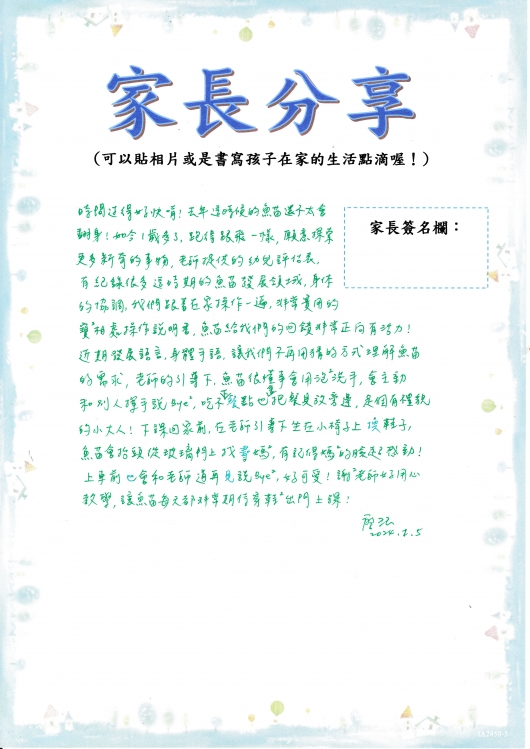 家長分享
（可以貼相片或是書寫孩子在家的生活點滴喔！）
家長簽名欄：
時間過得好快唷！去年這時候的魚苗還不太會
翻身！如今1歲多了，跑得跟飛一樣，願意探索
更多新奇的事物，老師提供的幼兒評估表，
有紀錄很多這時期的魚苗發展領域，身体
的協調，我們跟著在家操作一遍，非常實用的
寶寶相處操作說明書，魚苗給我們的回饋非常正向有活力！
近期發展語言，身體手語，讓我們不再用猜的方式理解魚苗
的需求，老師的引導下，魚苗很懂事會用泡泡洗手，會主動
和別人揮手說Bye Bye，吃下午點也會把餐具放旁邊，是個有禮貌
的小大人！下課回家前，在老師引導下坐在小椅子上換鞋子，
魚苗會抬頭從玻璃門上找媽媽，有記得媽媽的臉起感動！
上車前也會和老師道再見說Bye Bye，好可愛！謝謝老師好用心
教學，讓魚苗每天都非常期待穿鞋鞋出門上課！
2024.1.5